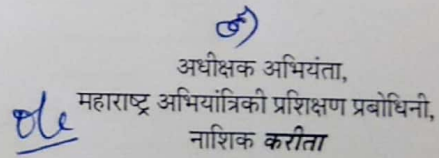 अधीक्षक अभियंता,
महाराष्ट्र अभियांत्रिकी प्रशिक्षण प्रबोधिनी,
नाशिक करीता